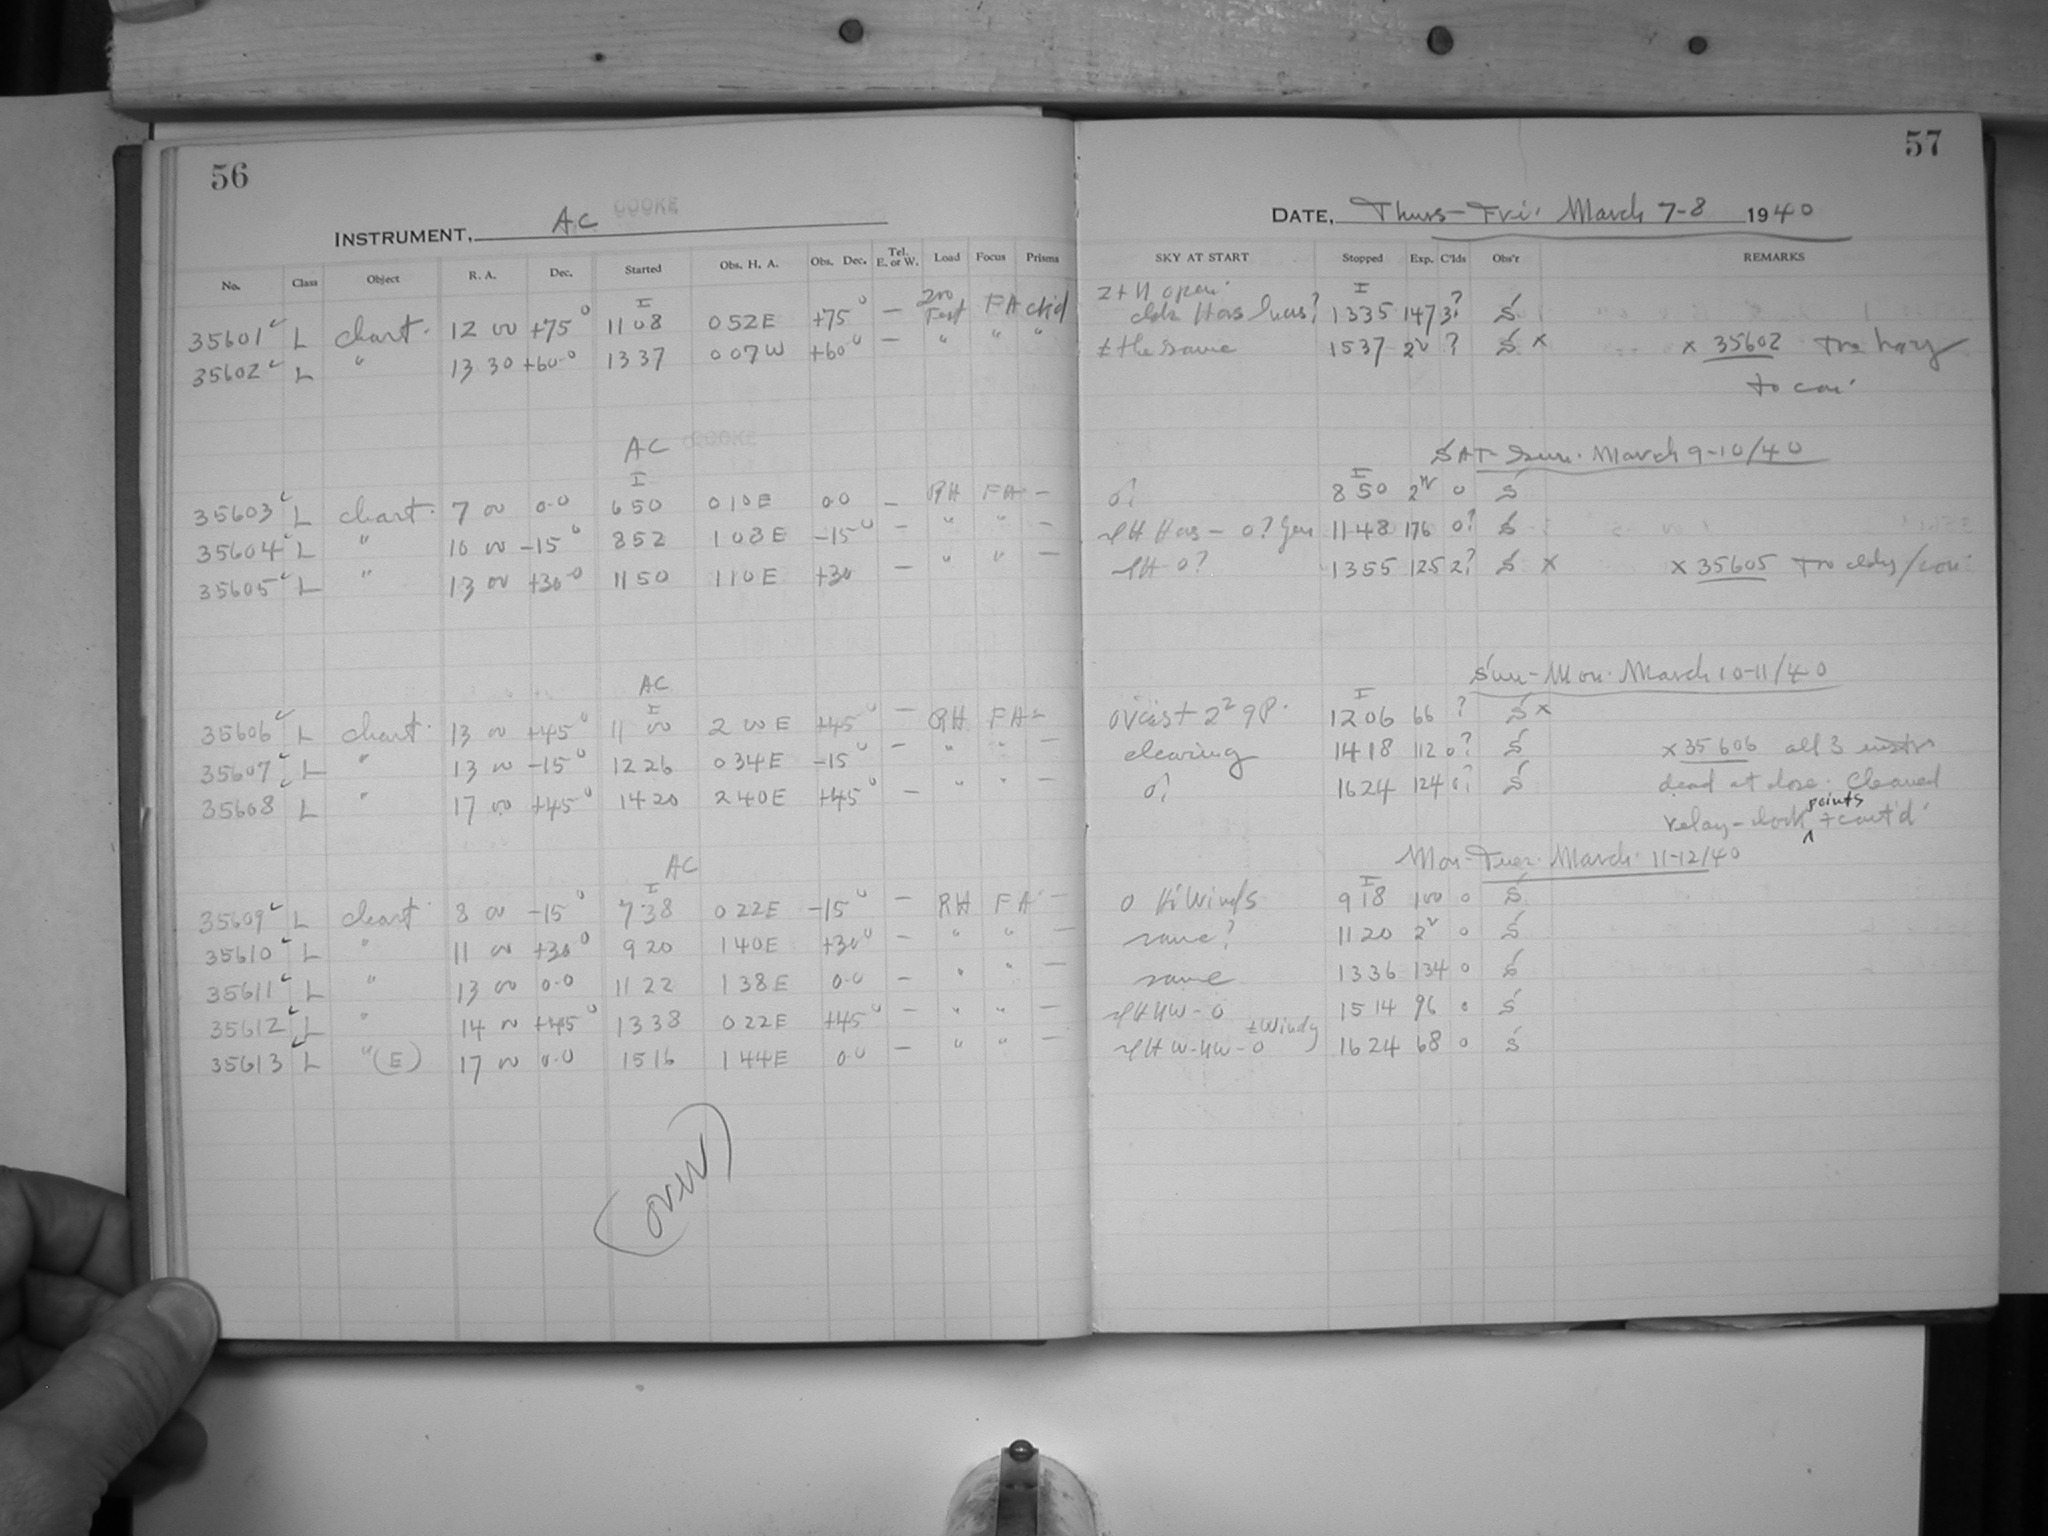 56
INSTRUMENT, AC COOKE
No. Class Object R. A. Dec. Started Obs. H. A. Obs. Dec. Tel. E. or W. Load Focus Prisms
35601 L chart. 12 00 +75° 1108 0 52E +75° — Test FA
35602 L " 13 30 +60° 1337 0 07W +60° — " " "
AC COOKE
I
35603 L chart. 7 00 0.0 650 0 10E 0.0 — RH FA —
35604 L " 10 00 -15° 852 1 08E -15° — " " —
35605 L " 13 00 +30° 1150 1 10E +30 — " " —
AC
I
35606 L chart. 13 00 +45° 11 00 2 00E +45° — RH FA —
35607 L " 13 00 -15° 1226 0 34E -15° — " " —
35608 L " 17 00 +45° 1420 2 40E +45° — " " —
AC
I
35609 L chart. 8 00 -15° 738 0 22E -15° — RH FA —
35610 L " 11 00 +30° 920 1 40E +30° — " " —
35611 L " 13 00 0.0 1122 1 38E 0.0 — " " —
35612 L " 14 00 +45° 1338 0 22E +45° — " " —
35613 L "(E) 17 00 0.0 1516 1 44E 0.0 — " " —
(over)
57
DATE, Thurs-Fri. March 7-8 1940
SKY AT START Stopped Exp. C'lds Obs'r REMARKS
Z + N open.
1335 147 3? S
± the same 1537 2h ? S x x 35602 Too hazy
to con.
SAT-Sun. March 9-10/40
I
0? 850 2h 0 S
1148 176 0? S
0? 1355 125 2? S x x 35605 Too cldy/con.
Sun-Mon. March 10-11/40
I
ovcast 1206 66 ? S x
clearing 1418 112 0? S x 35606 all 3 instrs
0? 1624 124 0? S dead at close. Cleaned
relay-clock points + cont'd.
Mon-Tues. March 11-12/40
I
0 Hi Winds 918 100 0 S
same? 1120 2h 0 S
same 1336 134 0 S
1514 96 0 S
± Windy
1624 68 0 S